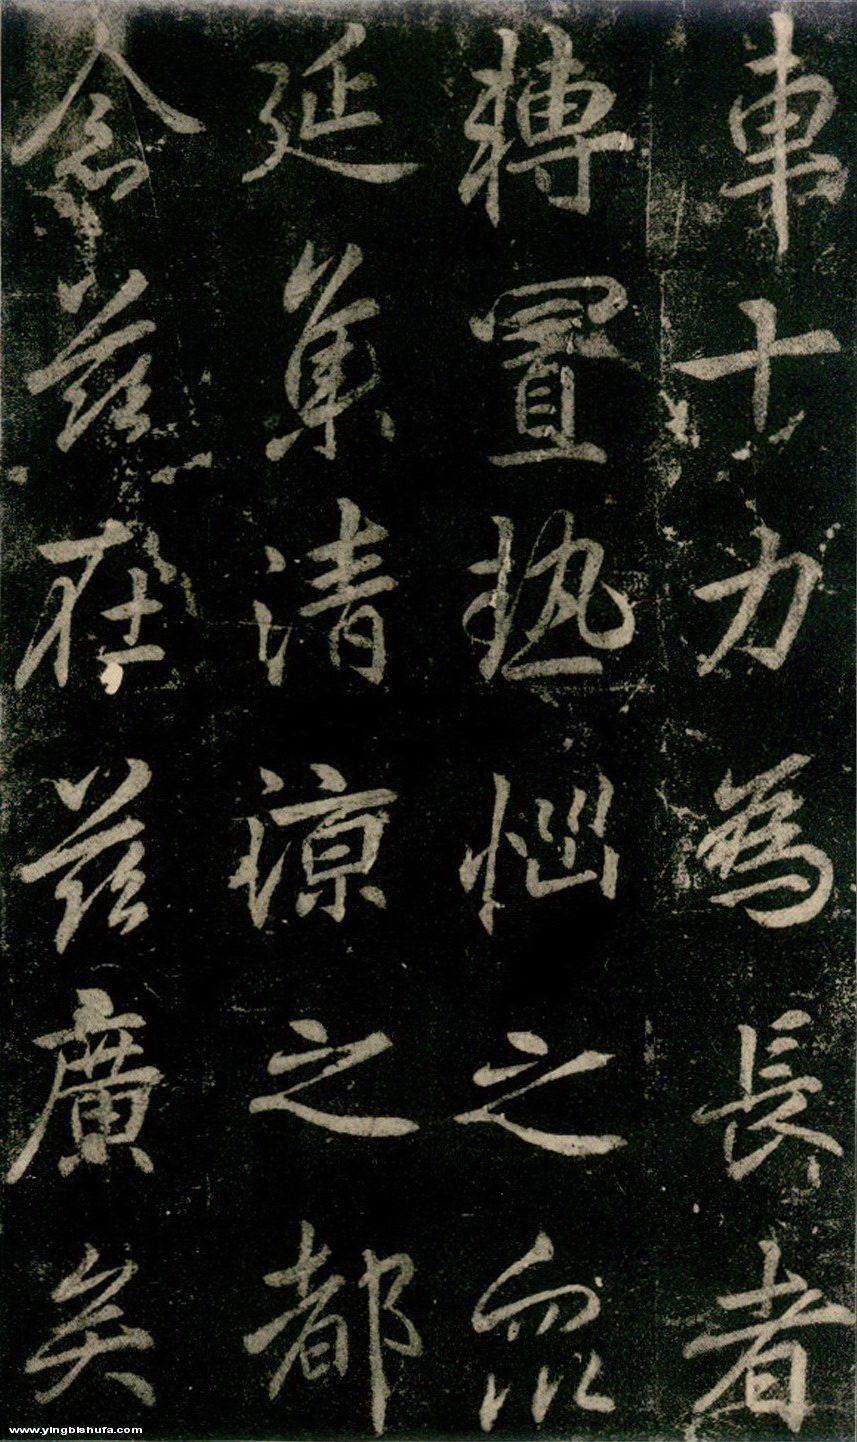 車十力為長者
轉置熱惱之衆
延集清涼之都
念茲在茲廣矣
www.yingbishufa.com